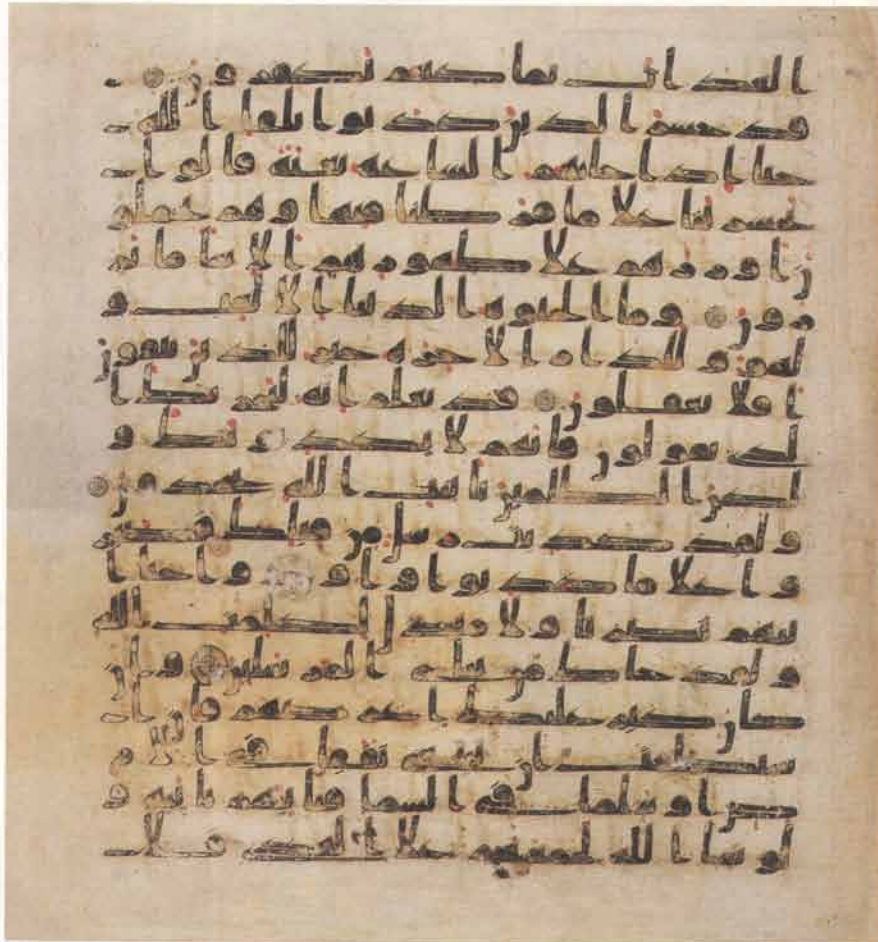 العذاب بما كنتم تكفرون
قد خسر الذين كذبوا بلقا الله
حتى اذا جاتهم الساعة بغتة قالوا يا
حسرتنا على ما فرطنا فيها وهم يحملو
ن اوزارهم على ظهورهم الا سا ما يز
رون وما الحيوة الدنيا الا لعب و
لهو وللدار الاخرة خير للذين يتقون
افلا تعقلون قد نعلم انه ليحزنك ا
لذي يقولون فانهم لا يكذبونك و
لكن الظلمين بايت الله يجحدون
ولقد كذبت رسل من قبلك فصبرو
ا على ما كذبوا واوذوا حتى ا
تيهم نصرنا ولا مبدل لكلمت الله
ولقد جاك من نباى المرسلين وان
كان كبر عليك اعراضهم فان ا
ستطعت ان تبتغي نفقا في الارض ا
و سلما في السما فتاتيهم باية و
لو شا الله لجمعهم على الهدى فلا